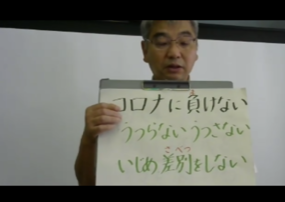 コロナに負けない
うつらない うつさない
いじめ差別をしない